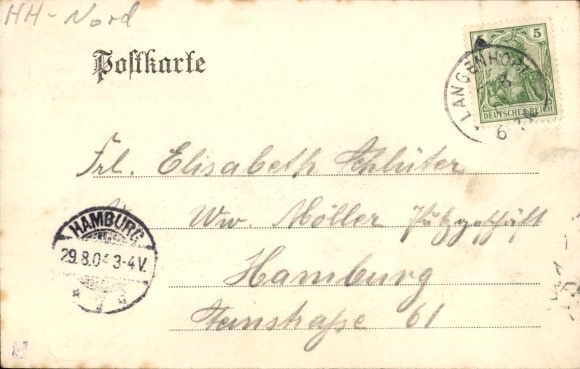 HH-Nord
Postkarte
5 5
DEUTSCHES REICH
LANGENHO
6 7 N
Frl. Elisabeth Schlüter
Ww. Möller Putzgeschäft
HAMBURG
29.8.04 3-4V.
Hamburg
Steinstraße 61